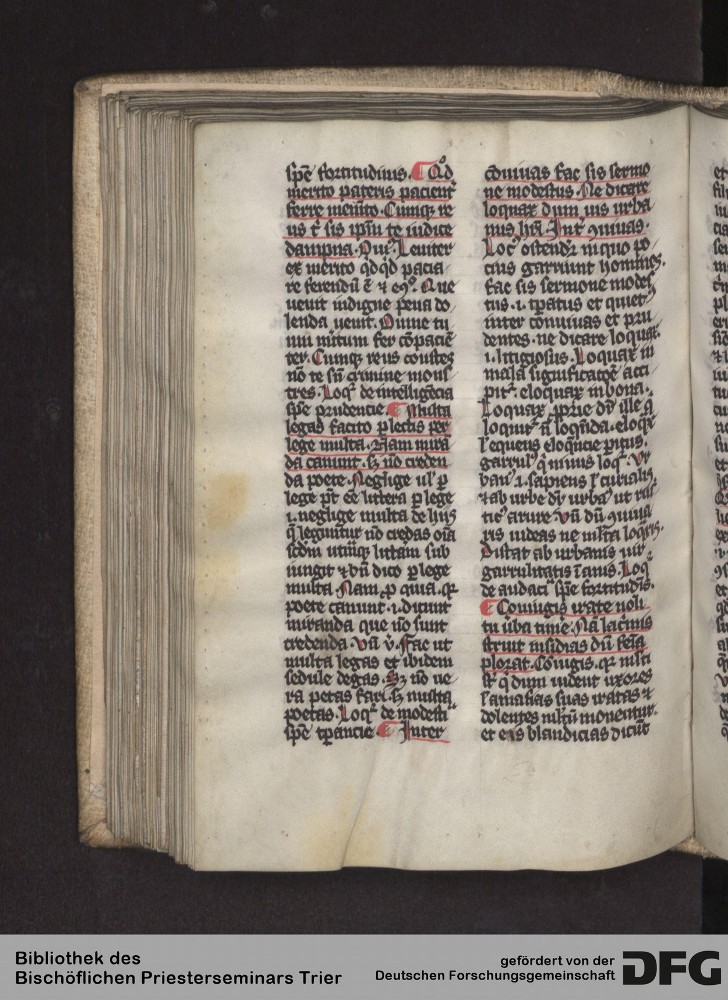 spē fortitudinis. ¶ Qđ
merito pateris pacient̾
ferre memēto. Cumq̄ re
us t̄ sis ipm̄ te iudice
dampna. Leniter
ex merito qđqđ pacia
re ferendū ē
uenit indigne pena do
lenda uenit.
ter. Cumq̄ reus
nō te sn̄ crimine mons
tres. Loq̄r de intelligēcia
spē prudencie. ¶ Multa
legas facito ꝑlectis ꝑ
lege multa. Nam mira
da canunt. sꝫ nō creden
da poete. Neglige ul̾ ꝑ
lege pt̄ eē littera ꝑlege
.i. neglige multa de hijs
q̄ legunt̾ nō credas oīa
scdm̄ utrūq̄ litt̾am sub
iungit
multa Nam quia. qꝛ
poete canunt .i. dicunt
miranda que nō sunt
credenda. Fac ut
multa legas et ibidem
sedule degas. Sꝫ nō ue
ra petas fari. sꝫ multa
poetas. Loq̄r de modesti
spē tꝑancie. ¶ Inter
cōuiuas fac sis sermo
ne modestus. Ne dicare
loquax dum uis urba
nus Int̾ ꝯuiuas.
Loc̾ ostendit̾ in quo po
cius garriunt homines.
fac sis sermone modes
tus .i. tꝑatus et quiet̾
inter conuiuas et pru
dentes. ne dicare loquax
.i. litigiosus. Loquax in
mala significatōe acci
pit̾. eloquax in bona.
Loquax ꝓprie dr̄ ille q̄
loquit̾ loq̄nda. eloq̄x
eloq̄ncie peritus.
garrul̾ q̄ nimis loq̄t̾. Ur
ban̾ .i. sapiens l̾ curialis
ab urbe dr̄ urban̾ ut rus
tic̾ a rure. Vn̄ dū ꝯuiua
ris uideas ne multa loq̄ris.
Distat ab urbanis uir
garrulitatis īanis. Loq̄
de audaci spē fortitudīs.
¶ Coniugis irate noli
tu uba timē. Nā lac̾mis
struit insidias dū fēīa
plorat. Cōiugis. qꝛ m̄lti
st̄ q̄ dum uident uxores
l̾ amasias suas iratas
dolentes m̄ltū mouent̾.
et eis blandicias dicūt
Bibliothek des
Bischöflichen Priesterseminars Trier
gefördert von der
Deutschen Forschungsgemeinschaft
DFG